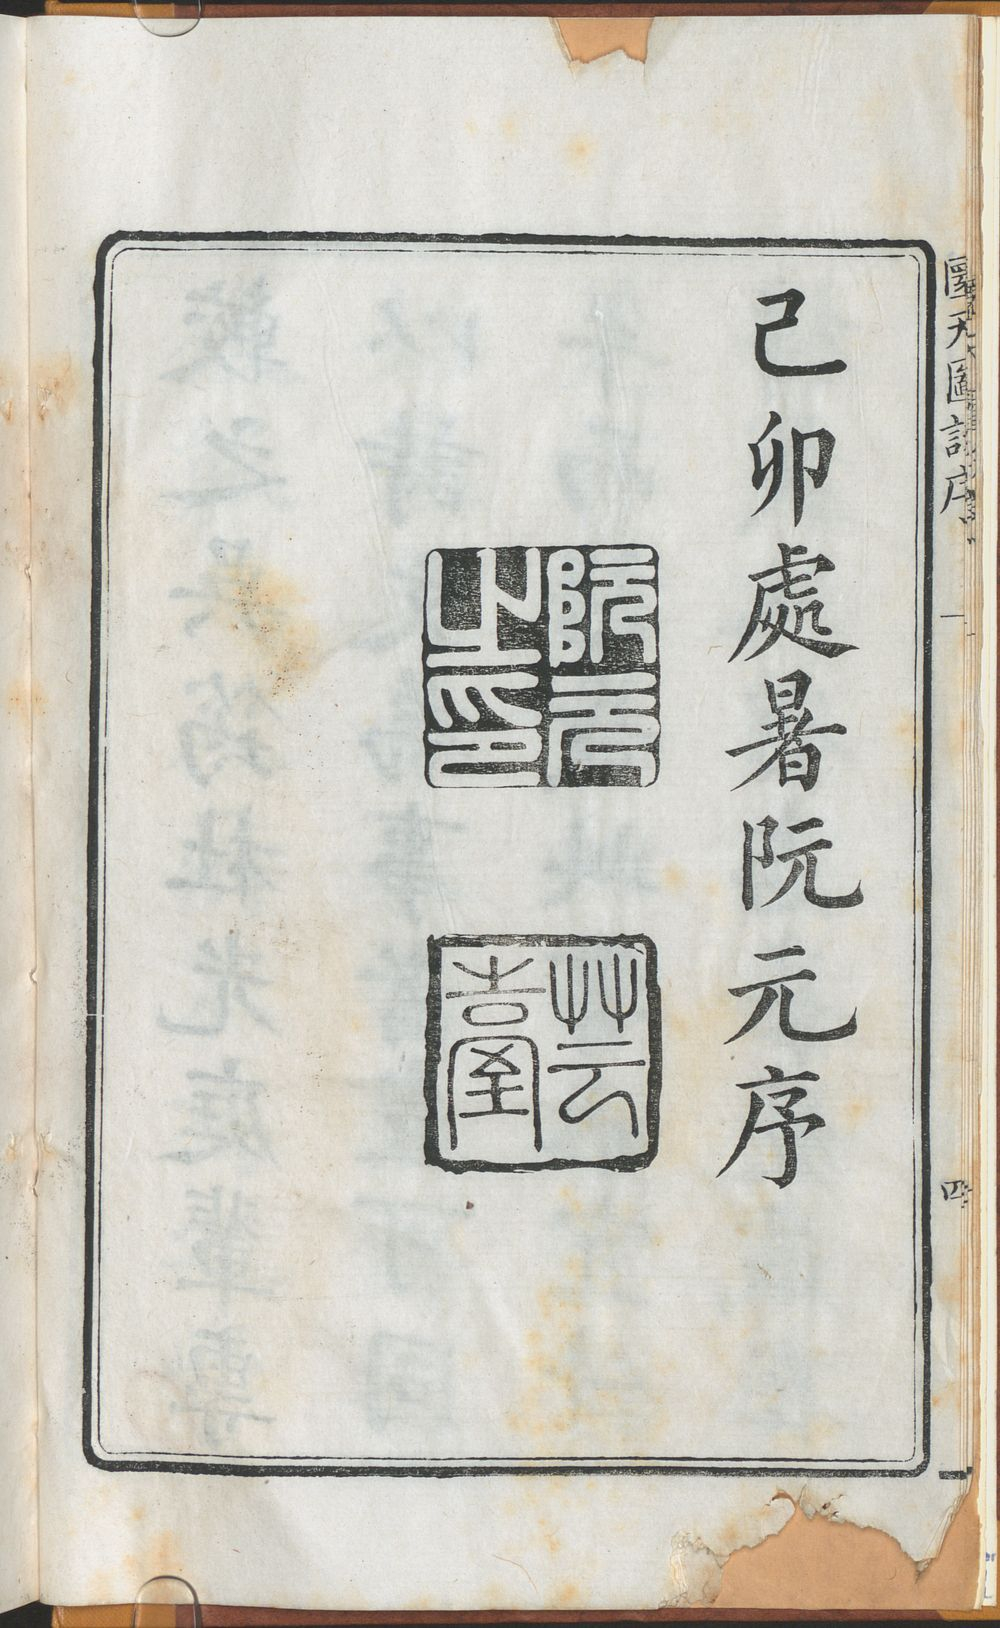 己卯處暑阮元序
阮元之印
芸臺
圜天圖說序
四